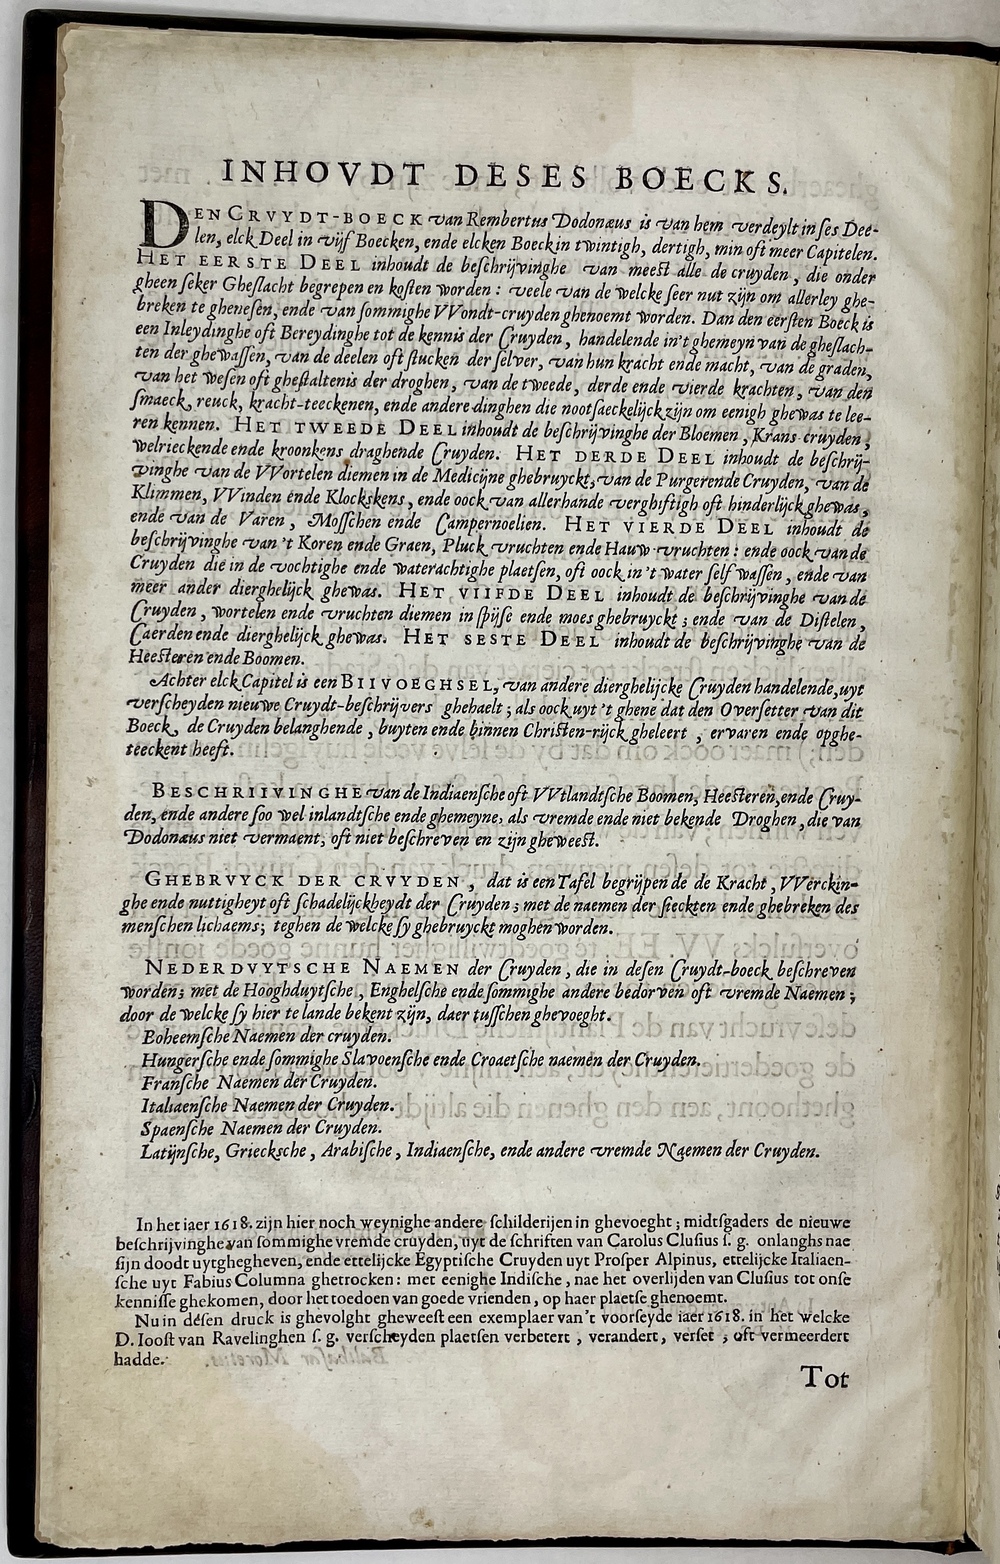 INHOVDT DESES BOECKS.
DEN CRVYDT-BOECK van Rembertus Dodonæus is van hem verdeylt in ses Dee-
len, elck Deel in vijf Boecken, ende elcken Boeck in twintigh, dertigh, min oft meer Capitelen.
HET EERSTE DEEL inhoudt de beschrijvinghe van meest alle de cruyden, die onder
gheen seker Gheslacht begrepen en kosten worden: veele van de welcke seer nut zijn om allerley ghe-
breken te ghenesen, ende van sommighe VVondt-cruyden ghenoemt worden. Dan den eersten Boeck is
een Inleydinghe oft Bereydinghe tot de kennis der Cruyden, handelende in't ghemeyn van de gheslach-
ten der ghewassen, van de deelen oft stucken der selver, van hun kracht ende macht, van de graden,
van het wesen oft ghestaltenis der droghen, van de tweede, derde ende vierde krachten, van den
smaeck, reuck, kracht-teeckenen, ende andere dinghen die nootsaeckelijck zijn om eenigh ghewas te lee-
ren kennen. HET TWEEDE DEEL inhoudt de beschrijvinghe der Bloemen, Krans-cruyden,
welrieckende ende kroonkens draghende Cruyden. HET DERDE DEEL inhoudt de beschrij-
vinghe van de VVortelen diemen in de Medicijne ghebruyckt, van de Purgerende Cruyden, van de
Klimmen, VVinden ende Klockskens, ende oock van allerhande verghiftigh oft hinderlijck ghewas,
ende van de Varen, Mosschen ende Campernoelien. HET VIERDE DEEL inhoudt de
beschrijvinghe van 't Koren ende Graen, Pluck vruchten ende Hauw-vruchten: ende oock van de
Cruyden die in de vochtighe ende waterachtighe plaetsen, oft oock in 't water self wassen, ende van
meer ander dierghelijck ghewas. HET VIIFDE DEEL inhoudt de beschrijvinghe van de
Cruyden, wortelen ende vruchten diemen in spijse ende moes ghebruyckt; ende van de Distelen,
Caerden ende dierghelijck ghewas. HET SESTE DEEL inhoudt de beschrijvinghe van de
Heesteren ende Boomen.
Achter elck Capitel is een BIIVOEGHSEL, van andere dierghelijcke Cruyden handelende, uyt
verscheyden nieuwe Cruydt-beschrijvers ghehaelt; als oock uyt 't ghene dat den Oversetter van dit
Boeck, de Cruyden belanghende, buyten ende binnen Christen-rijck gheleert, ervaren ende opghe-
teeckent heeft.
BESCHRIIVINGHE van de Indiaensche oft VVtlandtsche Boomen, Heesteren, ende Cruy-
den, ende andere soo wel inlandtsche ende ghemeyne, als vremde ende niet bekende Droghen, die van
Dodonæus niet vermaent, oft niet beschreven en zijn gheweest.
GHEBRVYCK DER CRVYDEN, dat is een Tafel begrijpende de Kracht, VVerckin-
ghe ende nuttigheyt oft schadelijckheydt der Cruyden; met de naemen der sieckten ende ghebreken des
menschen lichaems; teghen de welcke sy ghebruyckt moghen worden.
NEDERDVYTSCHE NAEMEN der Cruyden, die in desen Cruydt-boeck beschreven
worden; met de Hooghduytsche, Enghelsche ende sommighe andere bedorven oft vremde Naemen;
door de welcke sy hier te lande bekent zijn, daer tusschen ghevoeght.
Boheemsche Naemen der cruyden.
Hungersche ende sommighe Slavoensche ende Croaetsche naemen der Cruyden.
Fransche Naemen der Cruyden.
Italiaensche Naemen der Cruyden.
Spaensche Naemen der Cruyden.
Latijnsche, Griecksche, Arabische, Indiaensche, ende andere vremde Naemen der Cruyden.
In het iaer 1618. zijn hier noch weynighe andere schilderijen in ghevoeght; midtsgaders de nieuwe
beschrijvinghe van sommighe vremde cruyden, uyt de schriften van Carolus Clusius s. g. onlanghs nae
sijn doodt uytghegheven, ende ettelijcke Egyptische Cruyden uyt Prosper Alpinus, ettelijcke Italiaen-
sche uyt Fabius Columna ghetrocken: met eenighe Indische, nae het overlijden van Clusius tot onse
kennisse ghekomen, door het toedoen van goede vrienden, op haer plaetse ghenoemt.
Nu in desen druck is ghevolght gheweest een exemplaer van 't voorseyde iaer 1618. in het welcke
D. Ioost van Ravelinghen s. g. verscheyden plaetsen verbetert, verandert, verset, oft vermeerdert
hadde.
Tot